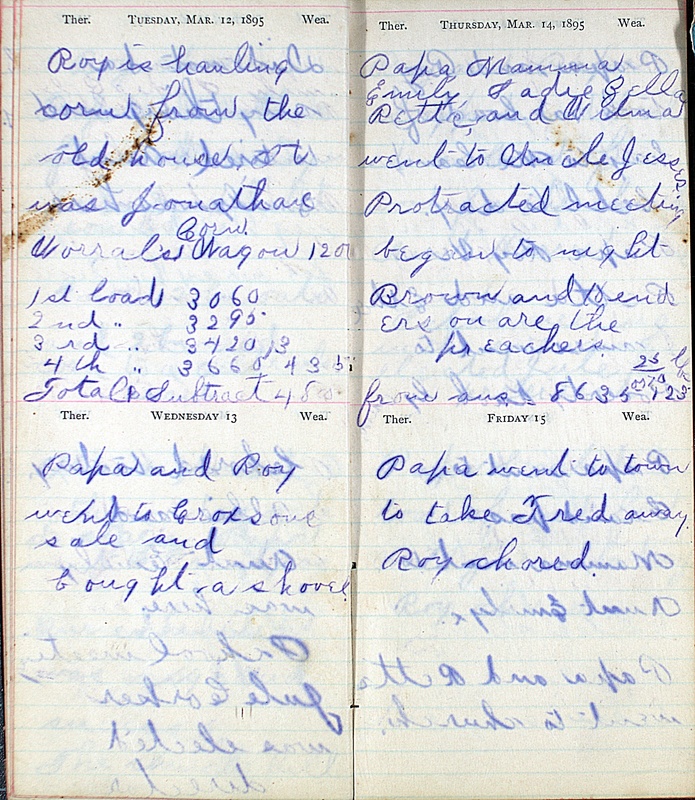 Ther. TUESDAY, MAR. 12, 1895 Wea.
Roy is hauling
corn from the
old house. It
was Jonathan
Corn.
Worral's Wagon 1200
1st load 3060
2nd " 3295
3rd " 3420
4th " 3660
Total Subtract
Ther. WEDNESDAY 13 Wea.
Papa and Roy
went to
sale and
bought a shovel
Ther. THURSDAY, MAR. 14, 1895 Wea.
Papa Mamma
Emily Sadie Zella
Retta, and Wilma
went to Uncle Jesses
Protracted meeting
began to night
Brown and Hend
erson are the
preachers.
from ans = 8635
Ther. FRIDAY 15 Wea.
Papa went to town
to take Fred away
Roy chored.